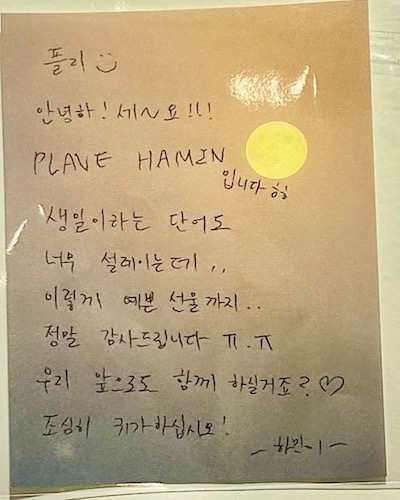 플리 :)
안녕하! 세~요!!!
PLAVE HAMIN
입니다 힝
생일이라는 단어도
너무 설레이는데,,
이렇게 예쁜 선물까지..
정말 감사드립니다 ㅠ.ㅠ
우리 앞으로도 함께 하실거죠? ♡
조심히 귀가하십시오!
- 하민이 -